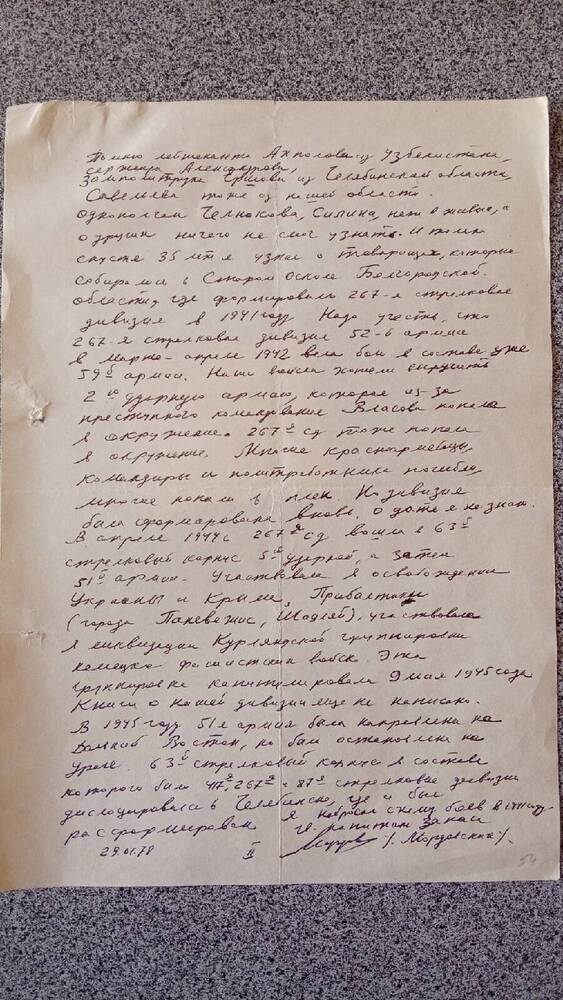 Помню лейтенанта Ахполова из Узбекистана,
сержанта Александрова,
Замполитрука из Челябинской области,
Савельева тоже из нашей области.
Однополчан Челнокова, Силина, нет в живых, а
о других ничего не смог узнать. И только
спустя 35 лет я узнал о товарищах, которые
собирались в Старом Осколе Белгородской
области, где формировалась 267-я стрелковая
дивизия в 1941 году. Надо учесть, что
267-я стрелковая дивизия 52-й армии
в марте-апреле 1942 вела бои в составе уже
59й армии. Наши войска хотели выручить
2ую ударную армию, которая из-за
преступного командования Власова попала
в окружение. 267я сд тоже попала
в окружение. Многие красноармейцы,
командиры и политработники погибли,
многие попали в плен. Но дивизия
была сформирована вновь, о дате я не знаю.
В апреле 1944 г 267я сд вошла в 63й
стрелковый корпус 5й ударной, а затем
51й армии. Участвовала в освобождении
Украины и Крыма, Прибалтики
(города Паневежис, Шауляй), участвовала
в ликвидации Курляндской группировки
немецко фашистских войск. Эта
группировка капитулировала 9 мая 1945 года
Книги о нашей дивизии еще не написано.
В 1945 году 51я армия была направлена на
Дальний Восток, но была остановлена на
Урале. 63й стрелковый корпус в составе
которого были 417я, 267я и 87я стрелковые дивизии
дислоцировался в Челябинске, где и был
расформирован
Я набросал схему боев в 1941 году
капитан запаса
29.01.78 II /. Мордовский /.
54